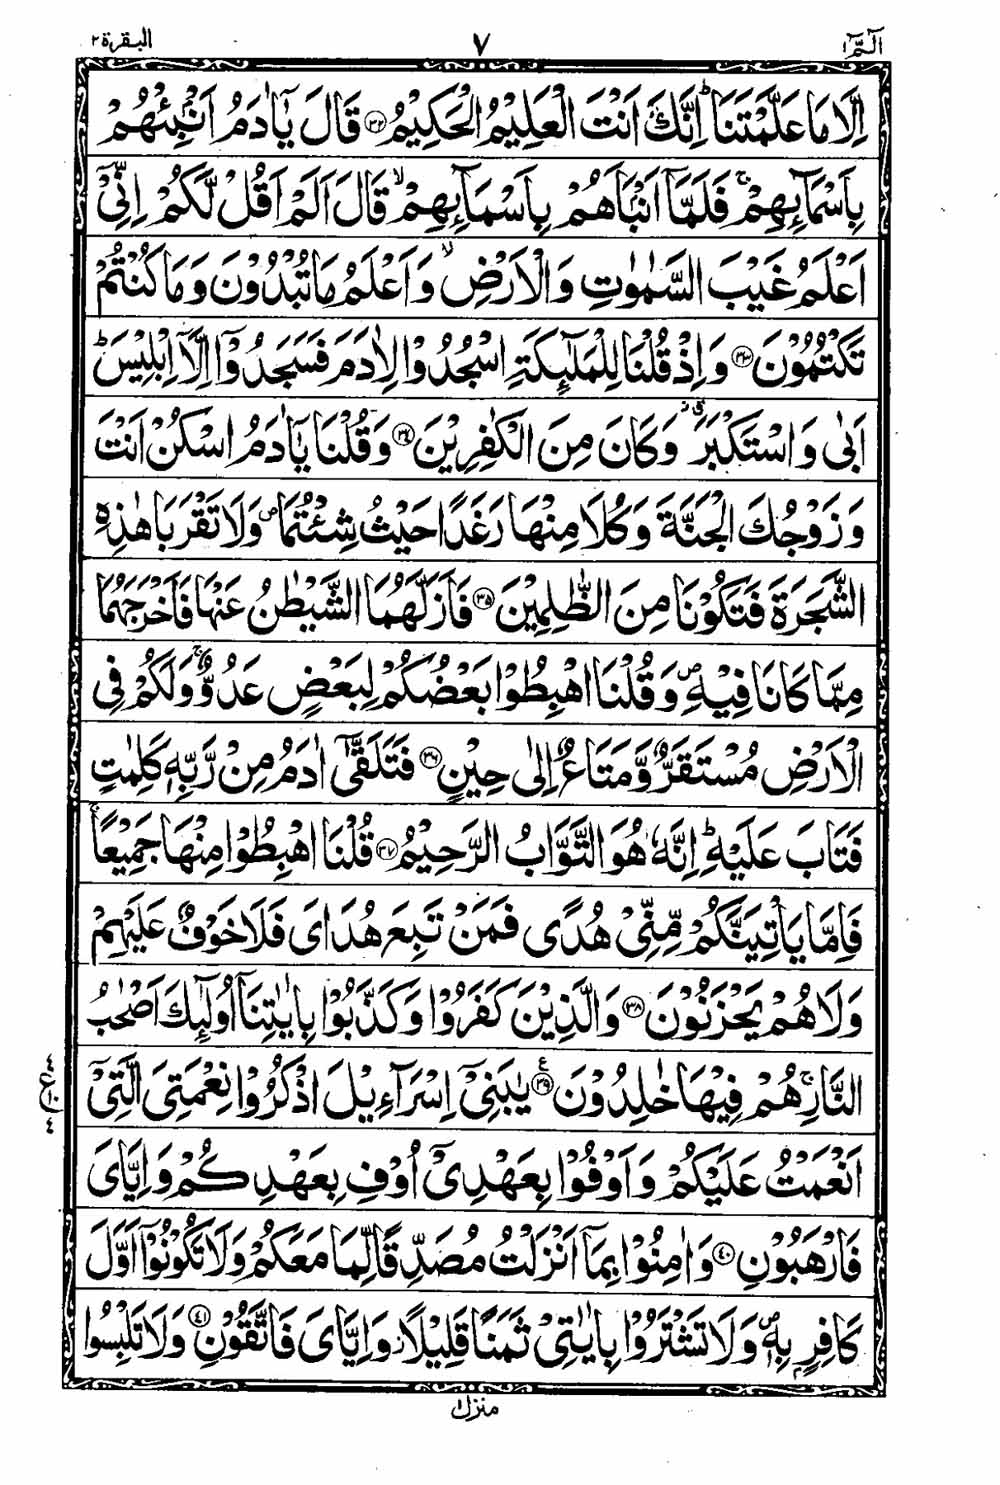 الٓمّٓ ١ ٧ البقرة ٢
اِلَّا مَا عَلَّمْتَنَا ؕ اِنَّكَ اَنْتَ الْعَلِیْمُ الْحَكِیْمُ ﴿۳۲﴾ قَالَ یٰۤاٰدَمُ اَنْۢبِئْهُمْ
بِاَسْمَآئِهِمْ ۚ فَلَمَّاۤ اَنْۢبَاَهُمْ بِاَسْمَآئِهِمْ ۙ قَالَ اَلَمْ اَقُلْ لَّكُمْ اِنِّیْۤ
اَعْلَمُ غَیْبَ السَّمٰوٰتِ وَالْاَرْضِ ۙ وَاَعْلَمُ مَا تُبْدُوْنَ وَمَا كُنْتُمْ
تَكْتُمُوْنَ ﴿۳۳﴾ وَاِذْ قُلْنَا لِلْمَلٰٓئِكَةِ اسْجُدُوْا لِاٰدَمَ فَسَجَدُوْۤا اِلَّاۤ اِبْلِیْسَ ؕ
اَبٰی وَاسْتَكْبَرَ ۫ۗ وَكَانَ مِنَ الْكٰفِرِیْنَ ﴿۳۴﴾ وَقُلْنَا یٰۤاٰدَمُ اسْكُنْ اَنْتَ
وَزَوْجُكَ الْجَنَّةَ وَكُلَا مِنْهَا رَغَدًا حَیْثُ شِئْتُمَا ۪ وَلَا تَقْرَبَا هٰذِهِ
الشَّجَرَةَ فَتَكُوْنَا مِنَ الظّٰلِمِیْنَ ﴿۳۵﴾ فَاَزَلَّهُمَا الشَّیْطٰنُ عَنْهَا فَاَخْرَجَهُمَا
مِمَّا كَانَا فِیْهِ ۪ وَقُلْنَا اهْبِطُوْا بَعْضُكُمْ لِبَعْضٍ عَدُوٌّ ۚ وَلَكُمْ فِی
الْاَرْضِ مُسْتَقَرٌّ وَّمَتَاعٌ اِلٰی حِیْنٍ ﴿۳۶﴾ فَتَلَقّٰۤی اٰدَمُ مِنْ رَّبِّهٖ كَلِمٰتٍ
فَتَابَ عَلَیْهِ ؕ اِنَّهٗ هُوَ التَّوَّابُ الرَّحِیْمُ ﴿۳۷﴾ قُلْنَا اهْبِطُوْا مِنْهَا جَمِیْعًا ۚ
فَاِمَّا یَاْتِیَنَّكُمْ مِّنِّیْ هُدًی فَمَنْ تَبِعَ هُدَایَ فَلَا خَوْفٌ عَلَیْهِمْ
وَلَا هُمْ یَحْزَنُوْنَ ﴿۳۸﴾ وَالَّذِیْنَ كَفَرُوْا وَكَذَّبُوْا بِاٰیٰتِنَاۤ اُولٰٓئِكَ اَصْحٰبُ
النَّارِ ۚ هُمْ فِیْهَا خٰلِدُوْنَ ﴿۳۹﴾ یٰبَنِیْۤ اِسْرَآءِیْلَ اذْكُرُوْا نِعْمَتِیَ الَّتِیْۤ
اَنْعَمْتُ عَلَیْكُمْ وَاَوْفُوْا بِعَهْدِیْۤ اُوْفِ بِعَهْدِكُمْ وَاِیَّایَ
فَارْهَبُوْنِ ﴿۴۰﴾ وَاٰمِنُوْا بِمَاۤ اَنْزَلْتُ مُصَدِّقًا لِّمَا مَعَكُمْ وَلَا تَكُوْنُوْۤا اَوَّلَ
كَافِرٍۭ بِهٖ ۪ وَلَا تَشْتَرُوْا بِاٰیٰتِیْ ثَمَنًا قَلِیْلًا ؗ وَاِیَّایَ فَاتَّقُوْنِ ﴿۴۱﴾ وَلَا تَلْبِسُوا
منزل ١